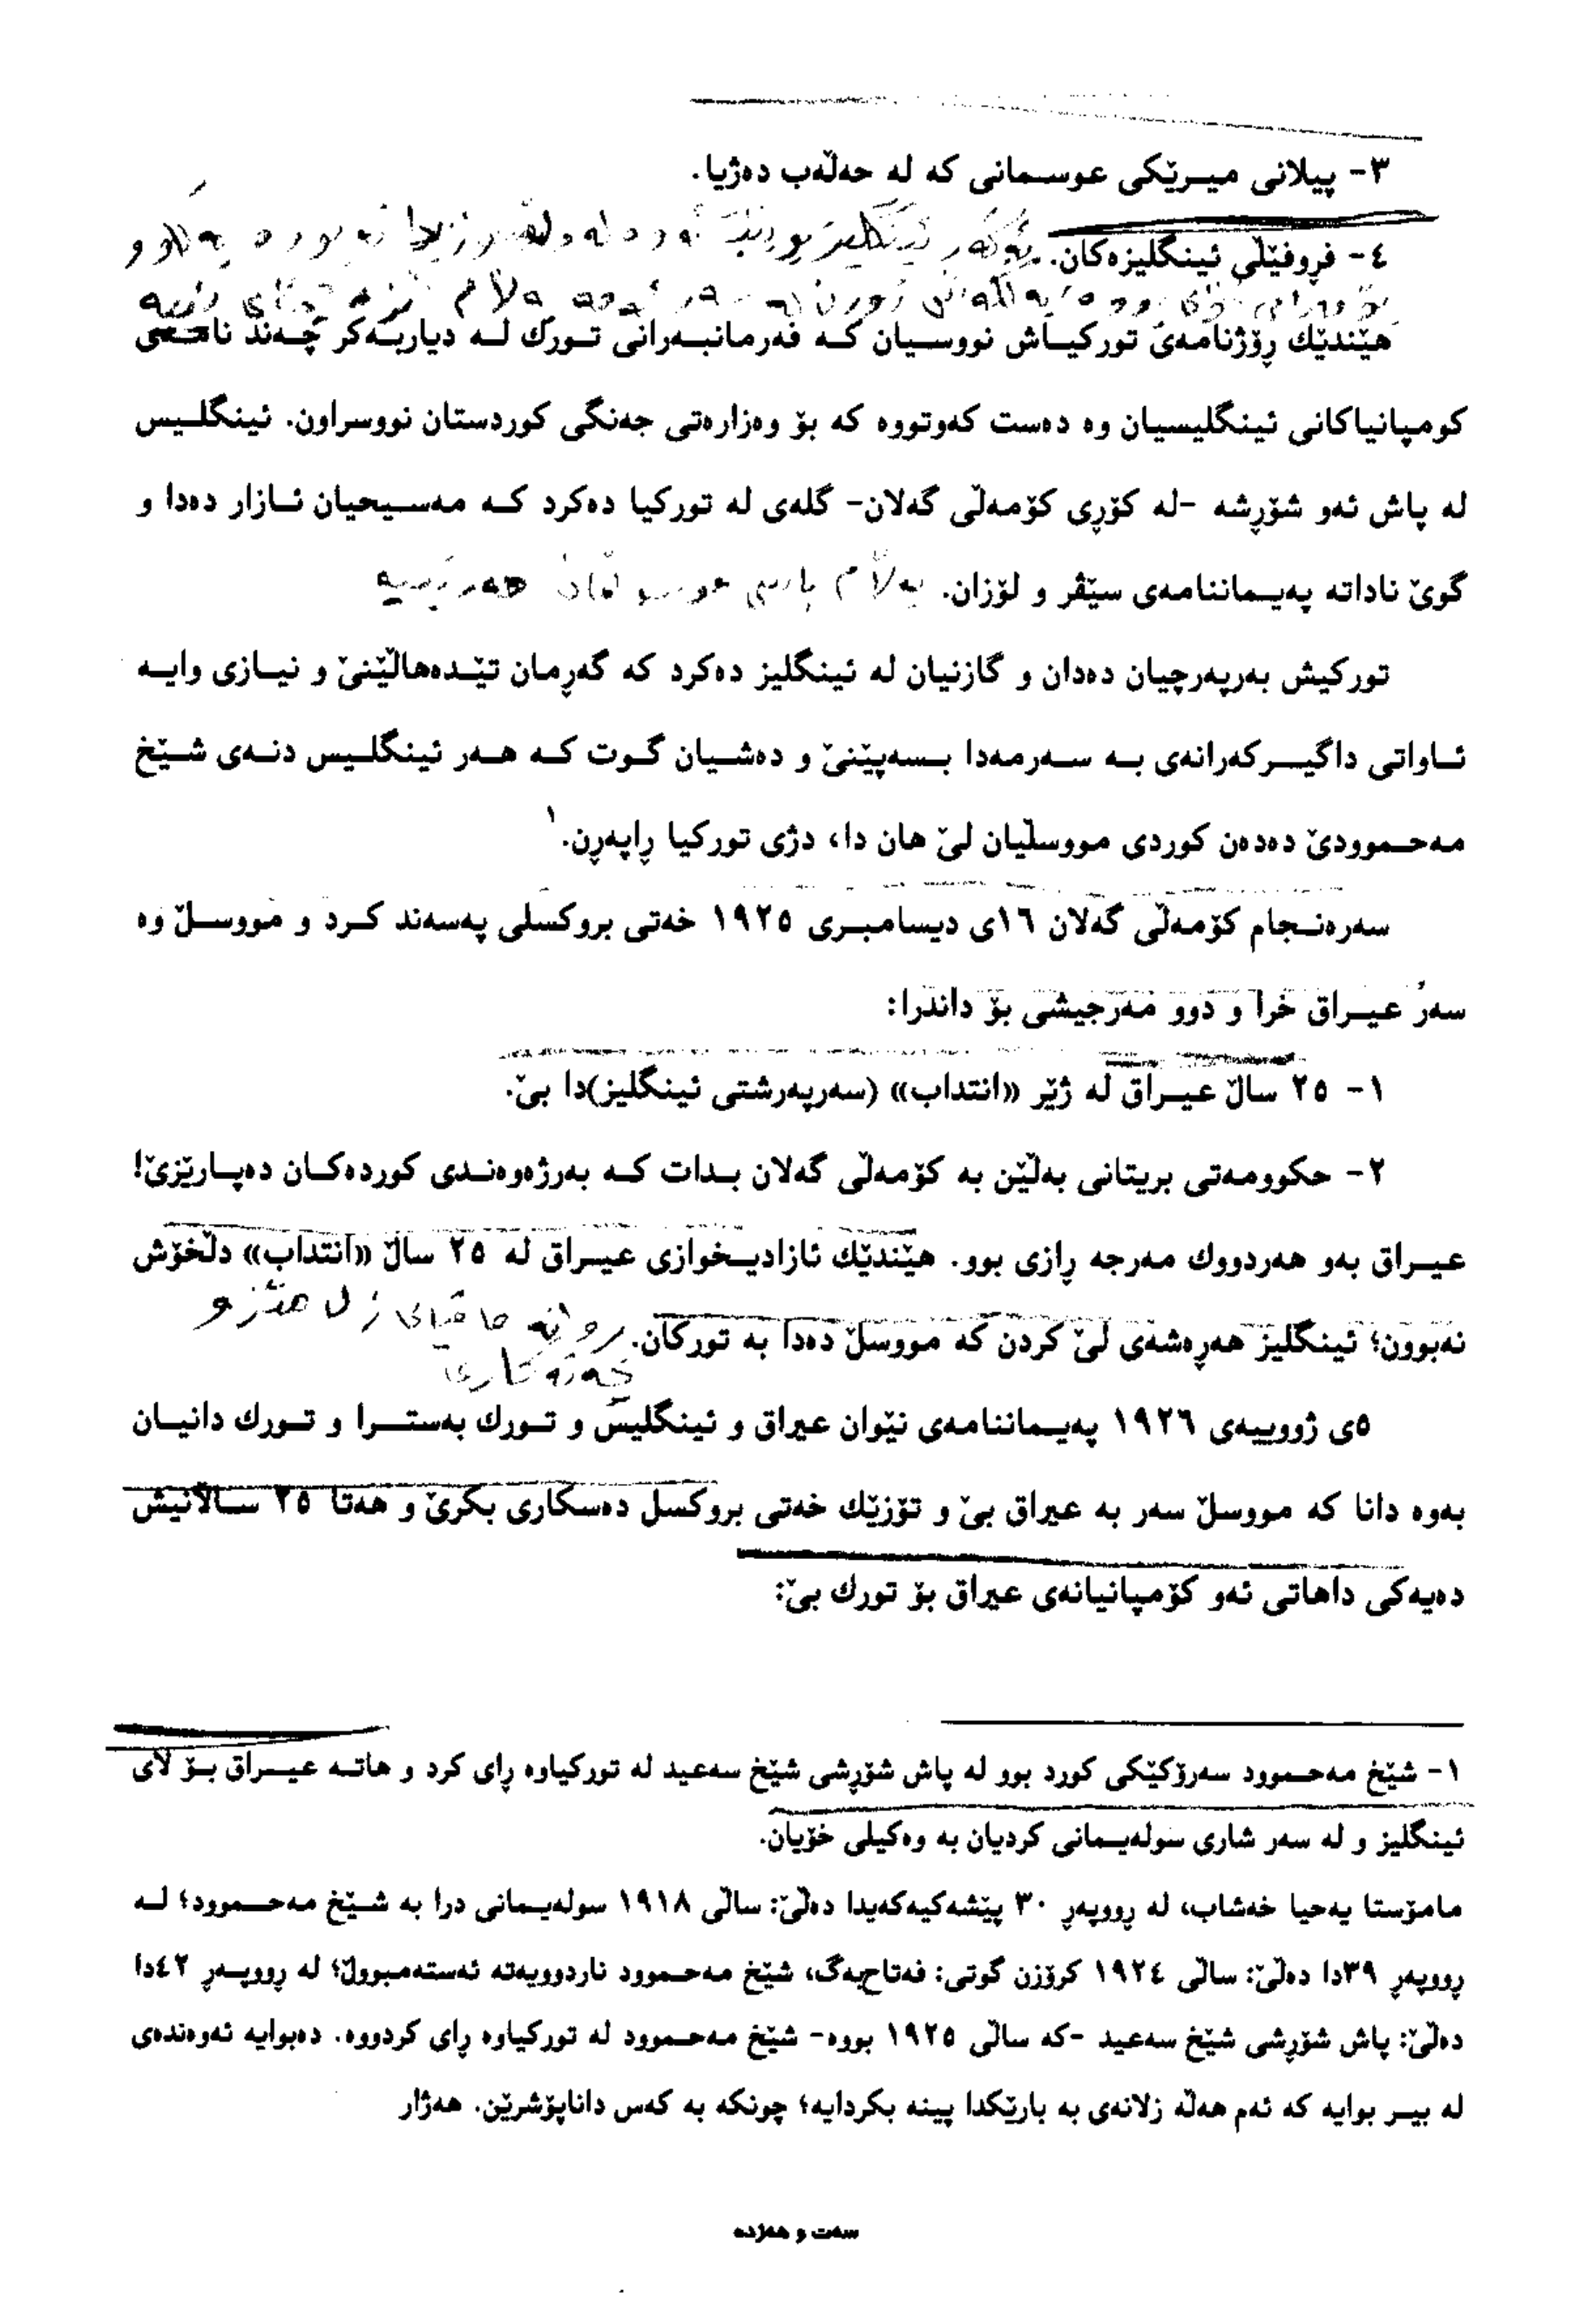 ٣- پیلانی میرێکی عوسمانی که له حەڵەب دەژیا.
٤- فڕوفێڵی ئینگلیزەکان.
هێندێك ڕۆژنامەی تورکیاش نووسیان که فەرمانبەرانی تورك له دیاربەکر چەند نامەی
کومپانیاکانی ئینگلیسیان وه دەست کەوتووه که بۆ وەزارەتی جەنگی کوردستان نووسراون. ئینگلیس
له پاش ئەو شۆڕشه -له کۆڕی کۆمەڵی گەلان- گلەی له تورکیا دەکرد که مەسیحیان ئازار دەدا و
گوێ ناداته پەیماننامەی سێڤر و لۆزان. بەڵام باسی
تورکیش بەرپەرچیان دەدان و گازنیان له ئینگلیز دەکرد که گەڕمان تێدەهاڵێنێ و نیازی وایه
ئاواتی داگیرکەرانەی به سەرمەدا بسەپێنێ و دەشیان گوت که هەر ئینگلیس دنەی شێخ
مەحموودێ دەدەن کوردی مووسڵیان لێ هان دا، دژی تورکیا ڕاپەڕن.١
سەرەنجام کۆمەڵی گەلان ١٦ی دیسامبری ١٩٢٥ خەتی بروکسلی پەسەند کرد و مووسڵ وه
سەر عیراق خرا و دوو مەرجیشی بۆ داندرا:
١- ٢٥ ساڵ عیراق له ژێر «انتداب» (سەرپەرشتی ئینگلیز)دا بێ.
٢- حکوومەتی بریتانی بەڵێن به کۆمەڵی گەلان بدات که بەرژەوەندی کوردەکان دەپارێزێ!
عیراق بەو هەردووك مەرجه ڕازی بوو. هێندێك ئازادیخوازی عیراق له ٢٥ ساڵ «انتداب» دڵخۆش
نەبوون؛ ئینگلیز هەڕەشەی لێ کردن که مووسڵ دەدا به تورکان.
٥ی ژوویيەی ١٩٢٦ پەیماننامەی نێوان عیراق و ئینگلیس و تورك بەسترا و تورك دانیان
بەوه دانا که مووسڵ سەر به عیراق بێ و تۆزێك خەتی بروکسل دەسکاری بکرێ و هەتا ٢٥ ساڵانیش
دەیەکی داهاتی ئەو کۆمپانیانەی عیراق بۆ تورك بێ:
١- شێخ مەحموود سەرۆکێکی کورد بوو له پاش شۆڕشی شێخ سەعید له تورکیاوه ڕای کرد و هاته عیراق بۆ لای
ئینگلیز و له سەر شاری سولەیمانی کردیان به وەکیلی خۆیان.
مامۆستا یەحیا خەشاب، له ڕووپەڕ ٣٠ پێشەکیەکەیدا دەڵێ: ساڵی ١٩١٨ سولەیمانی درا به شێخ مەحموود؛ له
ڕووپەڕ ٣٩دا دەڵێ: ساڵی ١٩٢٤ کرۆزن گوتی: فەتاح‌بەگ، شێخ مەحموود ناردوویەته ئەستەمبووڵ؛ له ڕووپەڕ ٤٢دا
دەڵێ: پاش شۆڕشی شێخ سەعید -که ساڵی ١٩٢٥ بووه- شێخ مەحموود له تورکیاوه ڕای کردووه. دەبوایه ئەوەندەی
له بیر بوایه که ئەم هەڵه زلانەی به بارێکدا پینه بکردایه؛ چونکه به کەس داناپۆشرێن. هەژار
سەت و هەژده